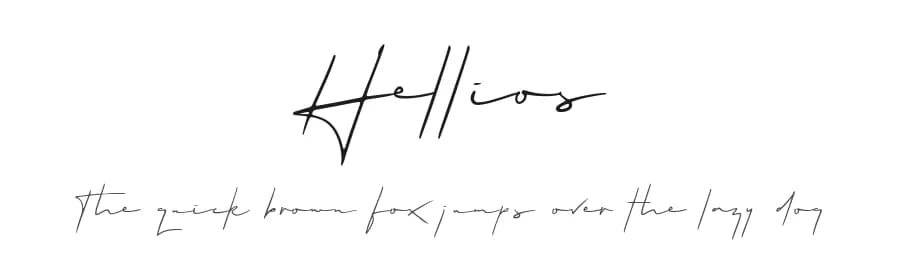 Hellios
The quick brown fox jumps over the lazy dog